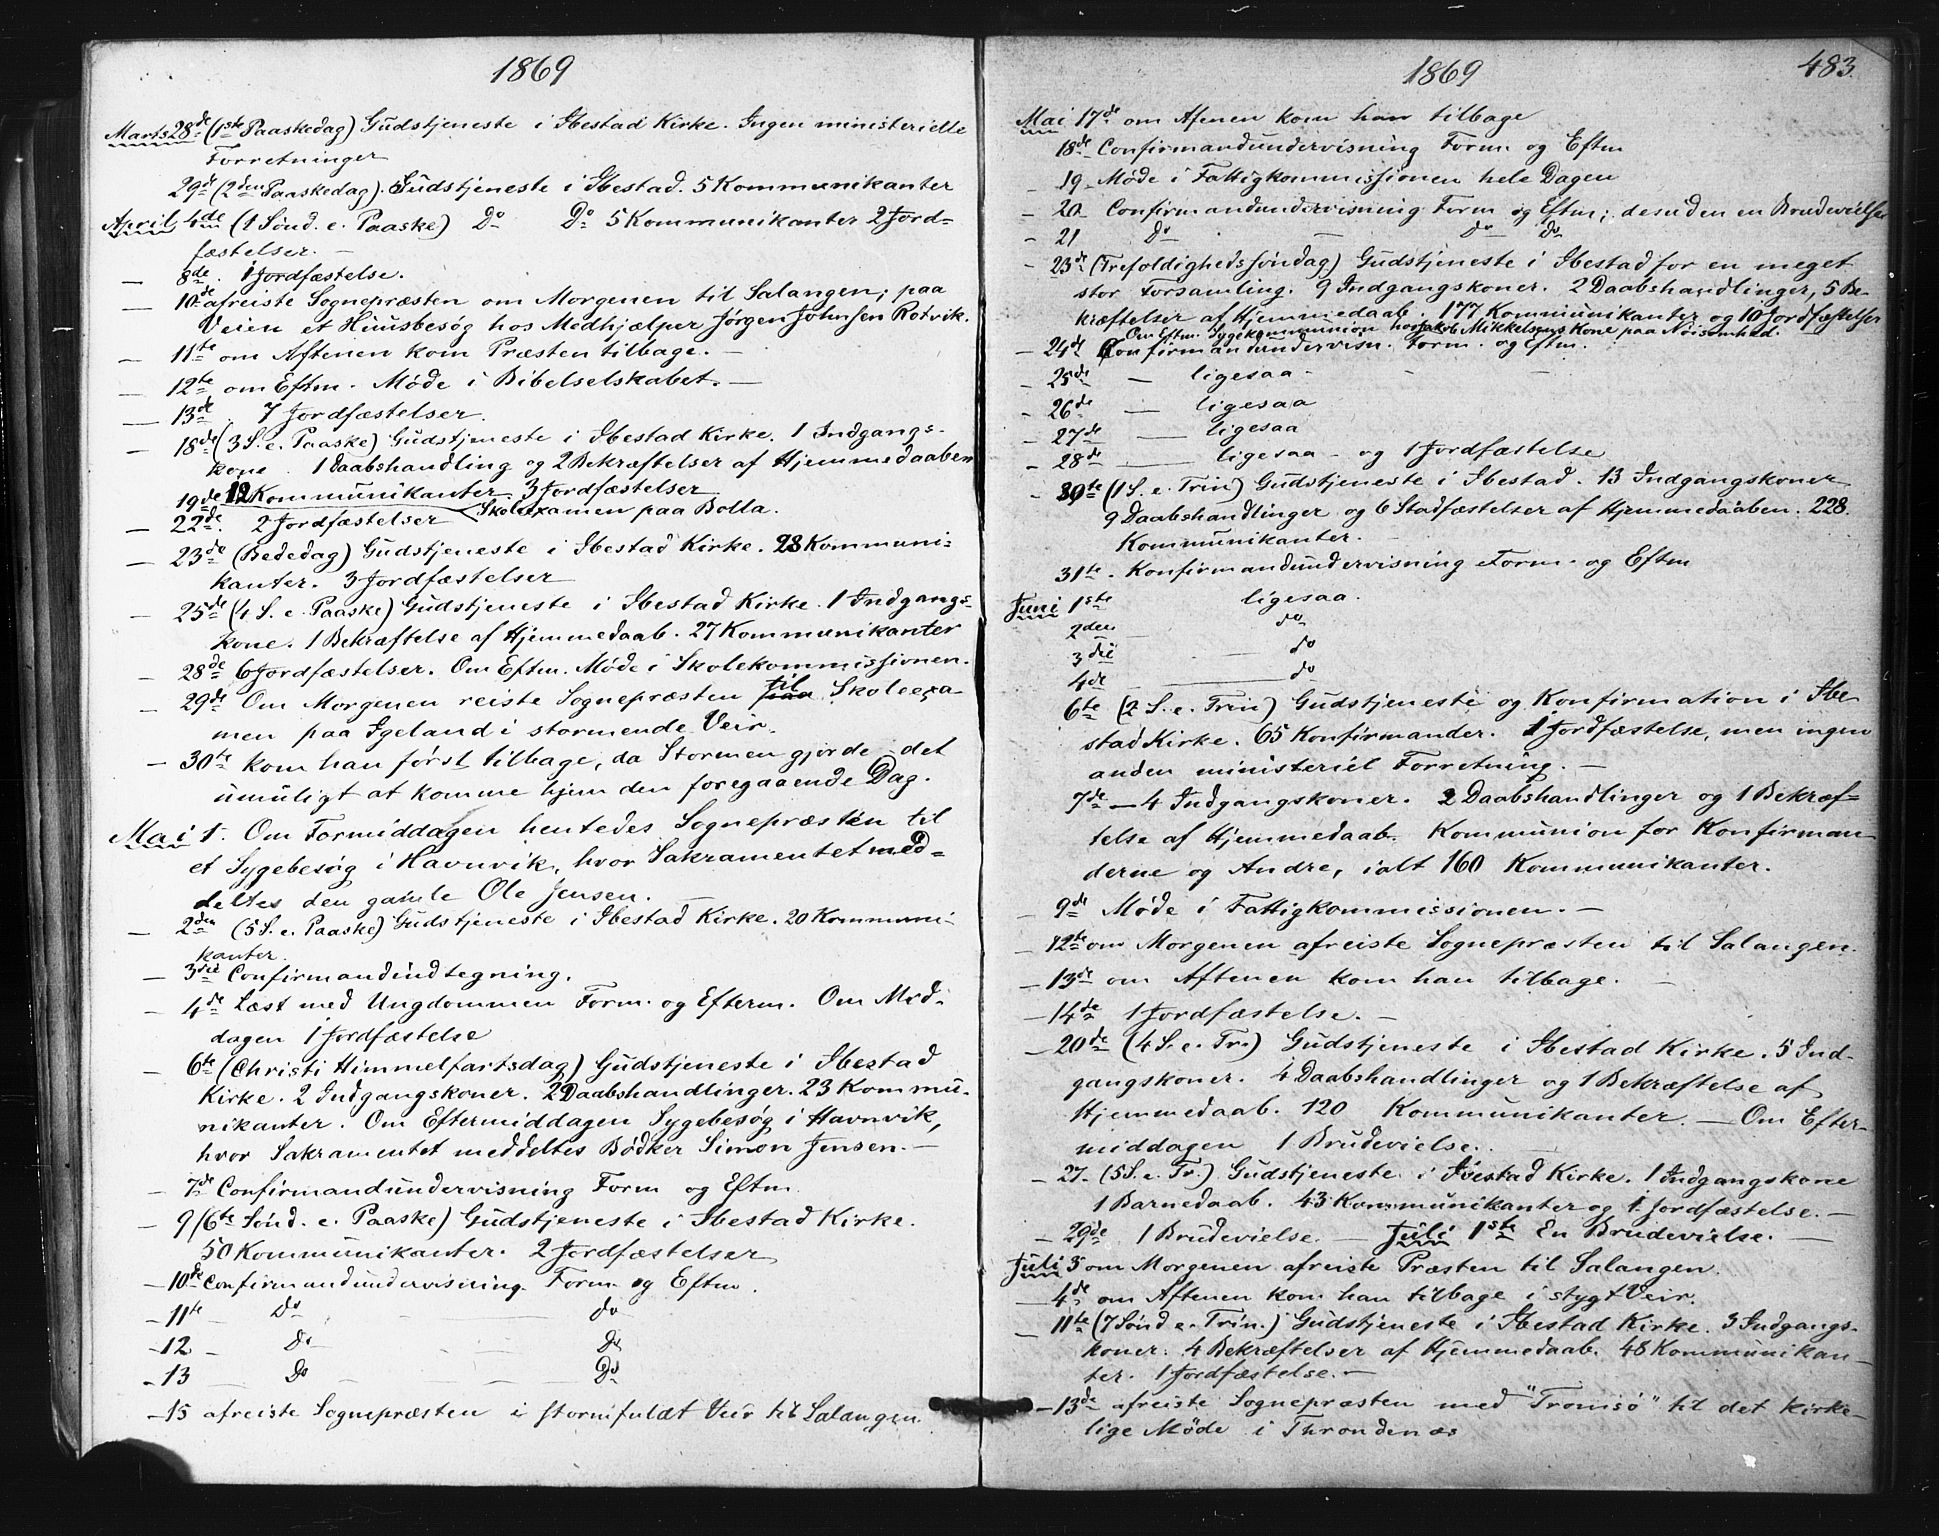 1869
Marts 28de (1ste Paaskedag) Gudstjeneste i Ibestad Kirke. Ingen ministerielle
Forretninger
29de (2den Paaskedag). Gudstjeneste i Ibestad. 5 Kommunikanter
April 4de (1 Sønd. e. Paaske) Do Do 5 Kommunikanter 2 Jord-
fæstelser. -
- 8de. 1 Jordfæstelse.
- 10de afreiste Sognepræsten om Morgenen til Salangen; paa
Veien et Huusbesøg hos Medhjælper Jørgen Johnsen Rotvik.
- 11te om Aftenen kom Præsten tilbage. -
- 12te om Eftm. Møde i Bibelselskabet. -
- 13de. 7 Jordfæstelser.
- 18de (3 S. e. Paaske) Gudstjeneste i Ibestad Kirke. 1 Indgangs-
kone. 1 Daabshandling og 2 Bekræftelser af Hjemmedaaben
12 Kommunikanter 3 Jordfæstelser
19de Skoleexamen paa Bolla.
- 22de. 2 Jordfæstelser
- 23de (Bededag) Gudstjeneste i Ibestad Kirke. 28 Kommuni-
kanter. 3 Jordfæstelser
- 25de (4 S. e. Paaske) Gudstjeneste i Ibestad Kirke. 1 Indgangs-
kone. 1 Bekræftelse af Hjemmedaab. 27 Kommunikanter
- 28de 6 Jordfæstelser. Om Eftm. Møde i Skolekommissionen.
- 29de Om Morgenen reiste Sognepræsten til Skoleexa-
men paa Igeland i stormende Veir.
- 30te kom han først tilbage, da Stormen gjorde det
umuligt at komme hjem den foregaaende Dag.
Mai 1. Om Formiddagen hentedes Sognepræsten til
et Sygebesøg i Havnvik, hvor Sakramentet med-
deltes den gamle Ole Jensen. -
- 2den (5 S. e. Paaske) Gudstjeneste i Ibestad Kirke. 20 Kommuni-
kanter.
- 3die Confirmandindtegning.
- 4de Læst med Ungdommen Form. og Efterm. Om Mid-
dagen 1 Jordfæstelse
- 6te (Christi Himmelfartsdag) Gudstjeneste i Ibestad
Kirke. 2 Indgangskoner. 2 Daabshandlinger. 23 Kommu-
nikanter. Om Eftermiddagen Sygebesøg i Havnvik,
hvor Sakramentet meddeltes Bødker Simon Jensen. -
- 7de Confirmandundervisning Form og Eftm.
- 9 (6te Sønd. e. Paaske) Gudstjeneste i Ibestad Kirke.
50 Kommunikanter. 2 Jordfæstelser
- 10de Confirmandundervisning Form og Eftm.
- 11te Do do
- 12 Do Do
- 13 Do Do
- 15 afreiste Sognepræsten i stormfuldt Veir til Salangen.
1869 483.
Mai 17de om Afenen kom han tilbage
18de Confirmandundervisning Form. og Eftm
- 19 - Møde i Fattigkommissionen hele Dagen
- 20 - Confirmandundervisning Form og Eftm; desuden en Brudevielse
- 21 do - do do
- 23de (Trefoldighedssøndag) Gudstjeneste i Ibestad for en meget
stor Forsamling. 9 Indgangskoner. 2 Daabshandlinger, 5 Be-
kræftelser af Hjemmedaab. 177 Kommunikanter og 10 Jordfæstelser
Om Eftm. Sygekommunion hos Jakob Mikkelsens Kone paa
- 24de Confirmandundervisn. Form. og Eftm.
- 25de - ligesaa -
- 26de - ligesaa
- 27de - ligesaa
- 28de - ligesaa - og 1 Jordfæstelse
- 30te (1 S. e. Trin) Gudstjeneste i Ibestad. 13 Indgangskoner
9 Daabshandlinger og 6 Stadfæstelser af Hjemmedaaben. 228.
Kommunikanter.
31te. Konfirmandundervisning Form. og Eftm
Juni 1ste ligesaa.
2den do
3die do
4de do
6te (2 S. e. Trin) Gudstjeneste og Konfirmation i Ibe-
stad Kirke. 65 Konfirmander. 1 Jordfæstelse, men ingen
anden ministeriel Forretning. -
7de - 4 Indgangskoner. 2 Daabshandlinger og 1 Bekræf-
telse af Hjemmedaab. Kommunion for Konfirman-
derne og Andre, ialt 160 Kommunikanter.
- 9de Møde i Fattigkommissionen. -
- 12te om Morgenen afreiste Sognepræsten til Salangen.
- 13de om Aftenen kom han tilbage. -
- 14de 1 Jordfæstelse. -
- 20de (4 S. e. Tr.) Gudstjeneste i Ibestad Kirke. 5 Ind-
gangskoner. 4 Daabshandlinger og 1 Bekræftelse af
Hjemmedaab. 120 Kommunikanter. - Om Efter-
middagen 1 Brudevielse.
- 27. (5 S. e. Tr.) Gudstjeneste i Ibestad Kirke. 1 Indgangskone
1 Barnedaab. 43 Kommunikanter og 1 Jordfæstelse. -
- 29de 1 Brudevielse. - Juli 1ste En Brudevielse. -
Juli 3 om Morgenen afreiste Præsten til Salangen.
- 4de om Aftenen kom han tilbage i stygt Veir.
- 11te (7 Sønd e. Trin.) Gudstjeneste i Ibestad Kirke. 3 Indgangs-
koner. 4 Bekræftelser af Hjemmedaab. 48 Kommunikan-
ter. 1 Jordfæstelse. -
- 13de afreiste Sognepræsten med "Tromsø" til det kirke-
lige Møde i Throndenæs